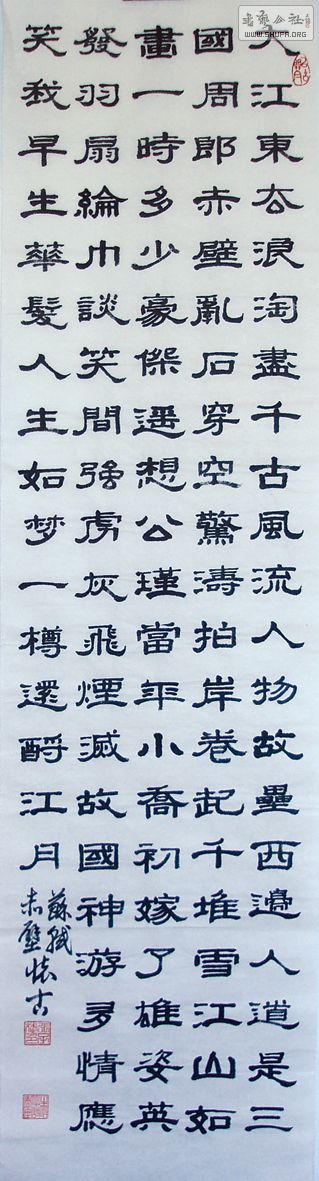 大江東去浪淘盡千古風流人物故壘西邊人道是三
國周郎赤壁亂石穿空驚濤拍岸卷起千堆雪江山如
畫一時多少豪傑遥想公瑾當年小喬初嫁了雄姿英
發羽扇綸巾談笑間強虏灰飛煙滅故國神游多情應
笑我早生華髮人生如梦一樽還酹江月
蘇軾
赤壁懷古
WWW.SHUFA.ORG